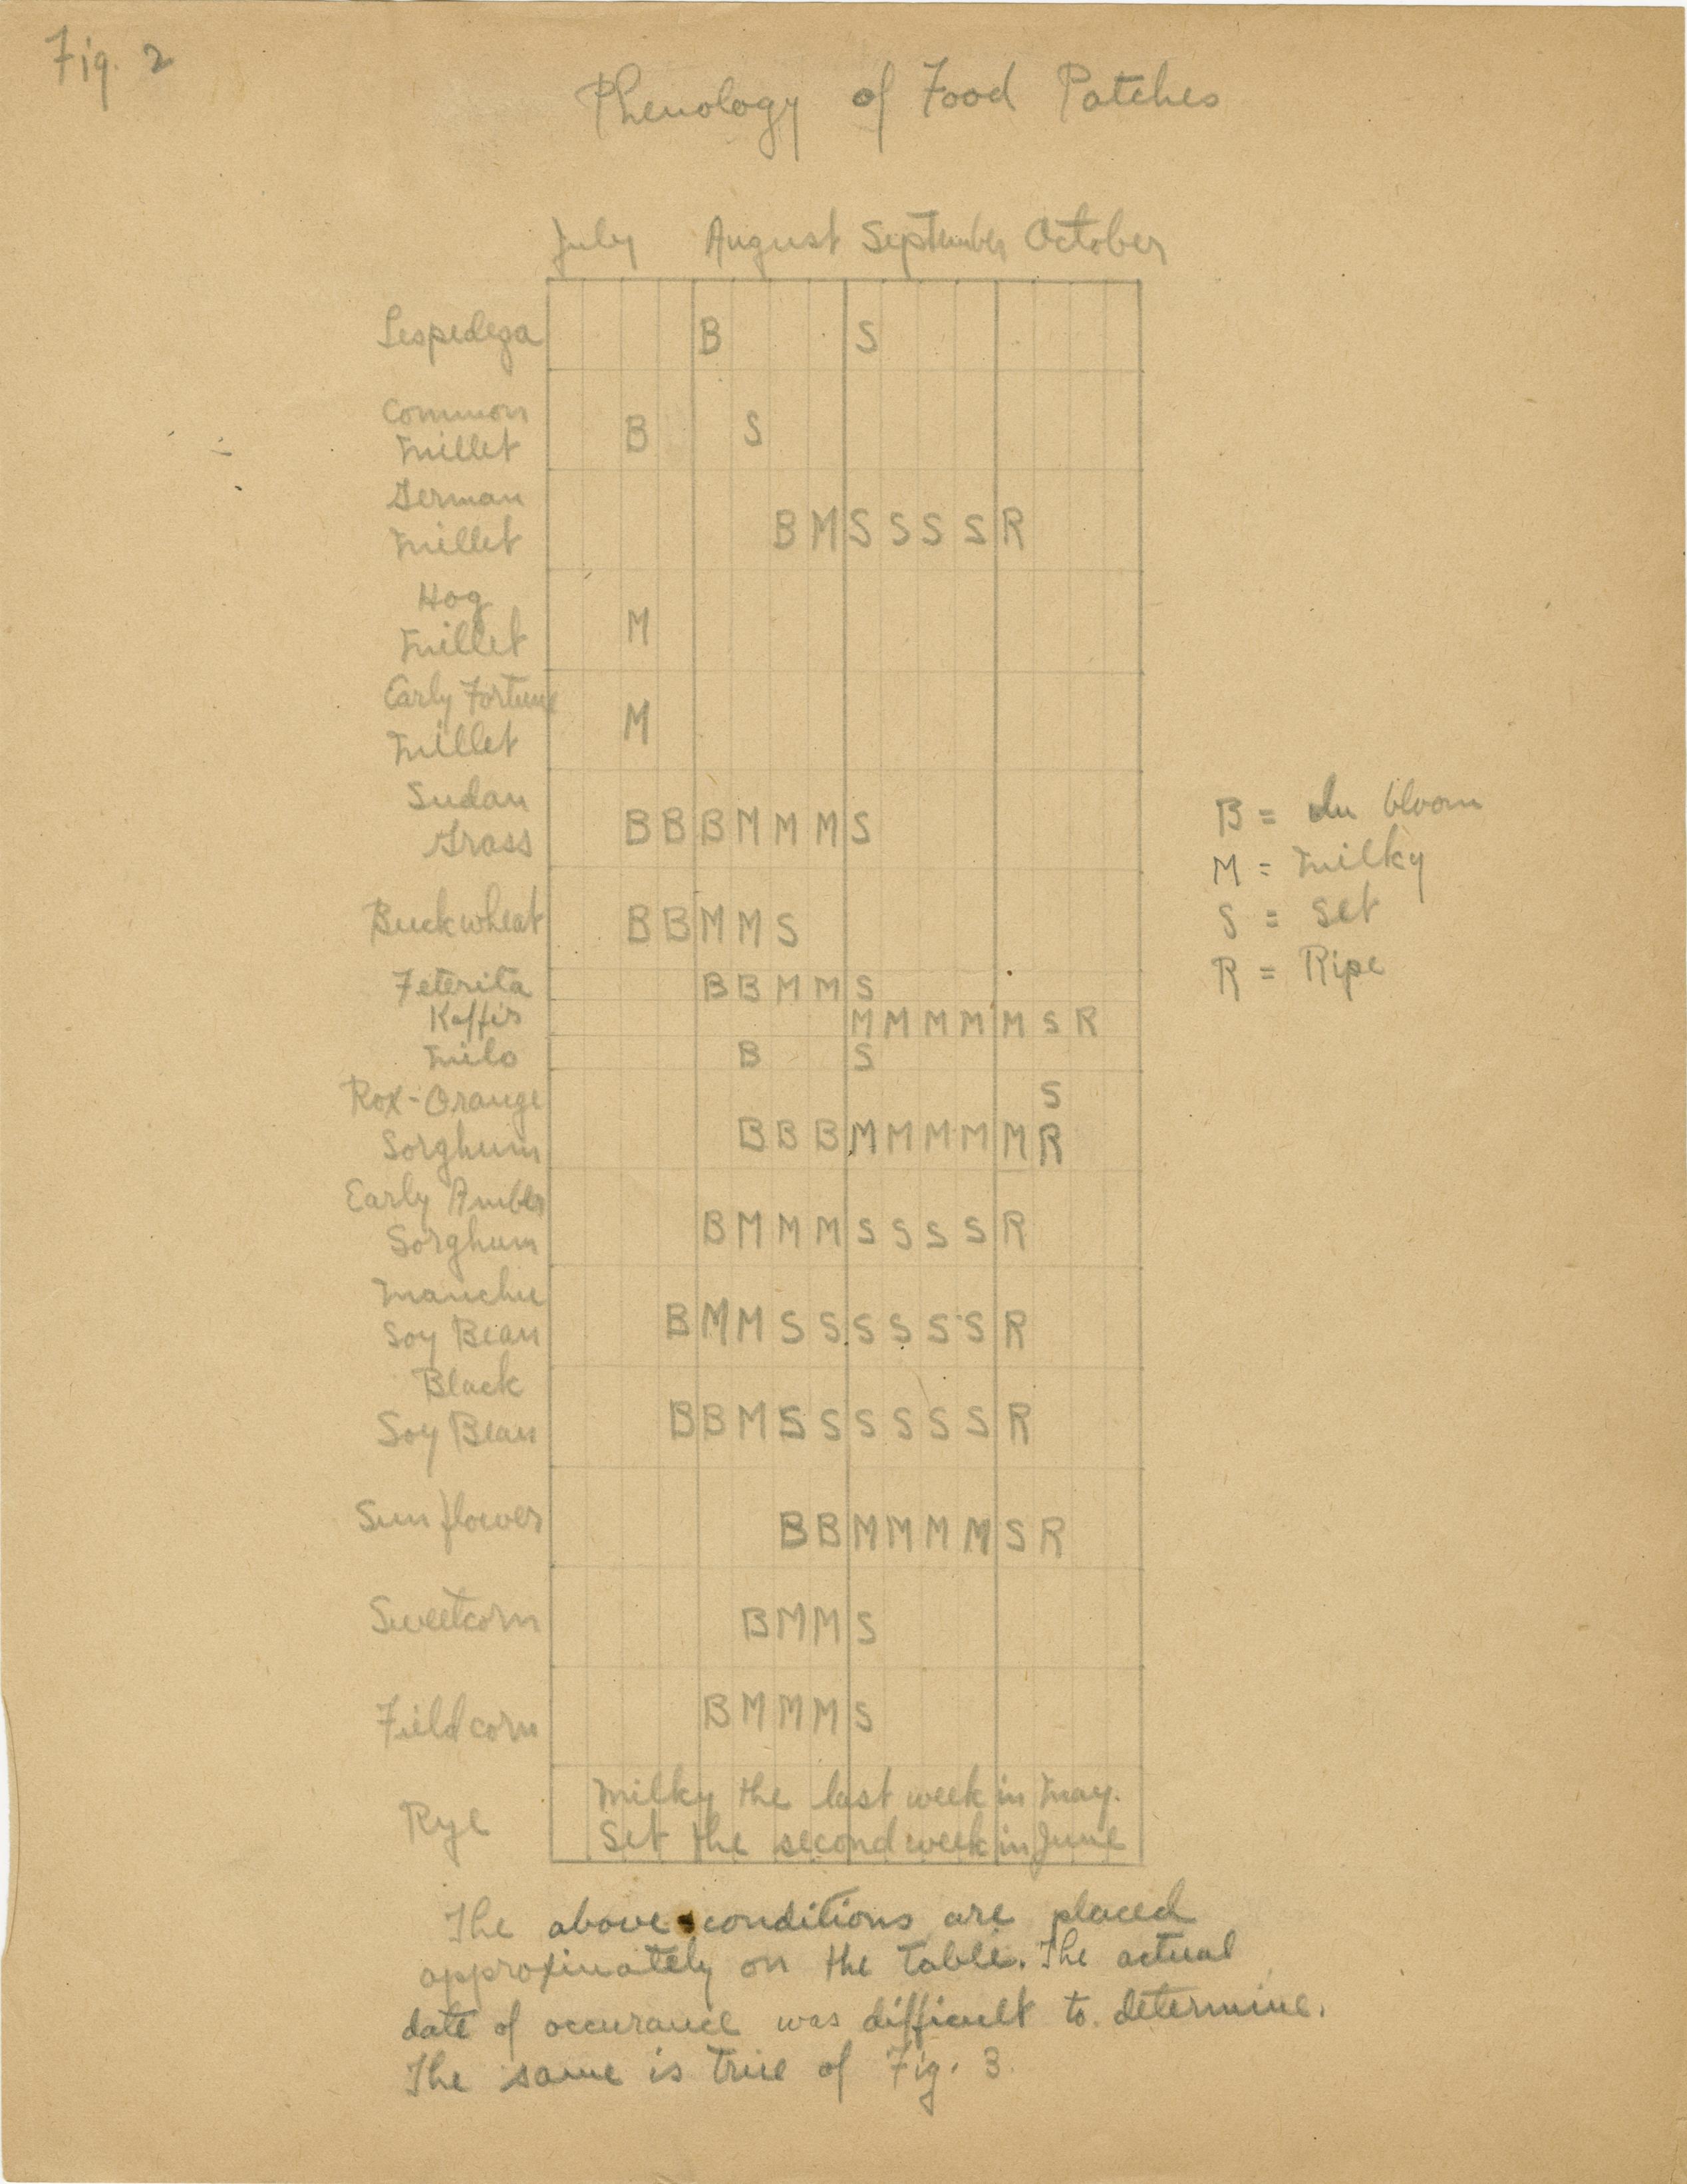 Fig. 2
Phenology of Food Patches
July August September October
Lespedeza B S
Common
Millet B S
German
Millet B M S S S S R
Hog
Millet M
Early Fortune
Millet M
Sudan
Grass B B B M M M S
B = In bloom
M = Milky
S = Set
R = Ripe
Buckwheat B B M M S
Feterita B B M M S
Kaffir M M M M M S R
Milo B S
Rox-Orange S
Sorghum B B B M M M M M R
Early Amber
Sorghum B M M M S S S S R
Manchu
Soy Bean B M M S S S S S S R
Black
Soy Bean B B M S S S S S S R
Sunflower B B M M M M S R
Sweetcorn B M M S
Fieldcorn B M M M S
Rye Milky the last week in May.
Set the second week in June
The above conditions are placed
approximately on the table. The actual
date of occurance was difficult to determine.
The same is true of Fig. 3.